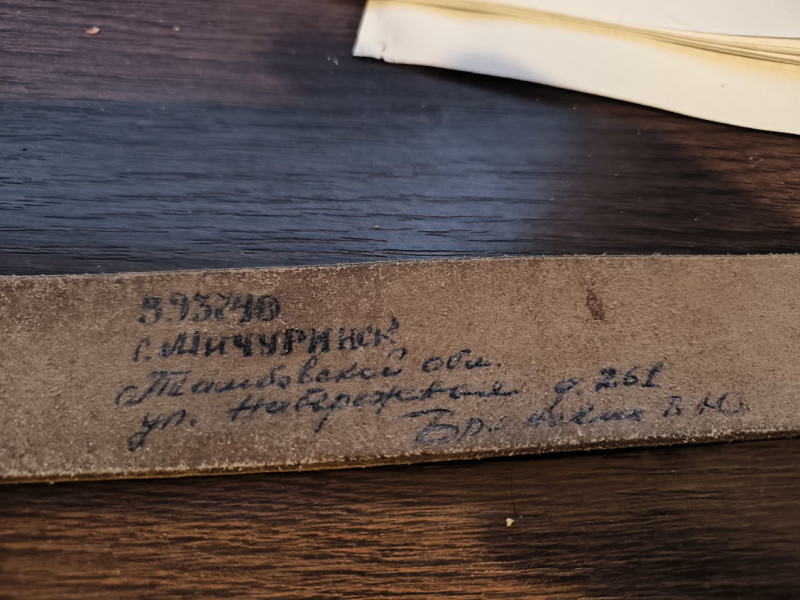 393740
г. МИЧУРИНСК
Тамбовской обл.
ул. Набережная д. 261